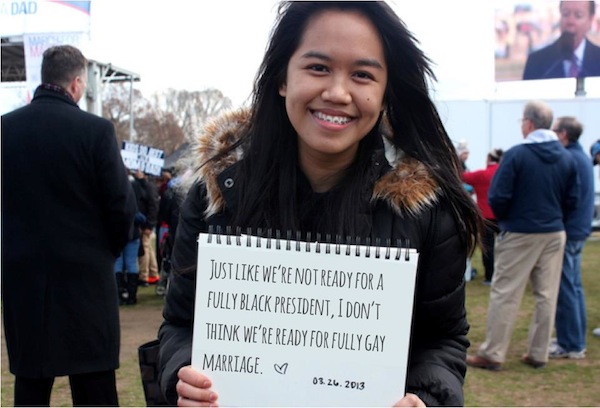 A DAD
MARCH FOR
JUST LIKE WE'RE NOT READY FOR A
FULLY BLACK PRESIDENT, I DON'T
THINK WE'RE READY FOR FULLY GAY
MARRIAGE. ♡
03.26.2013